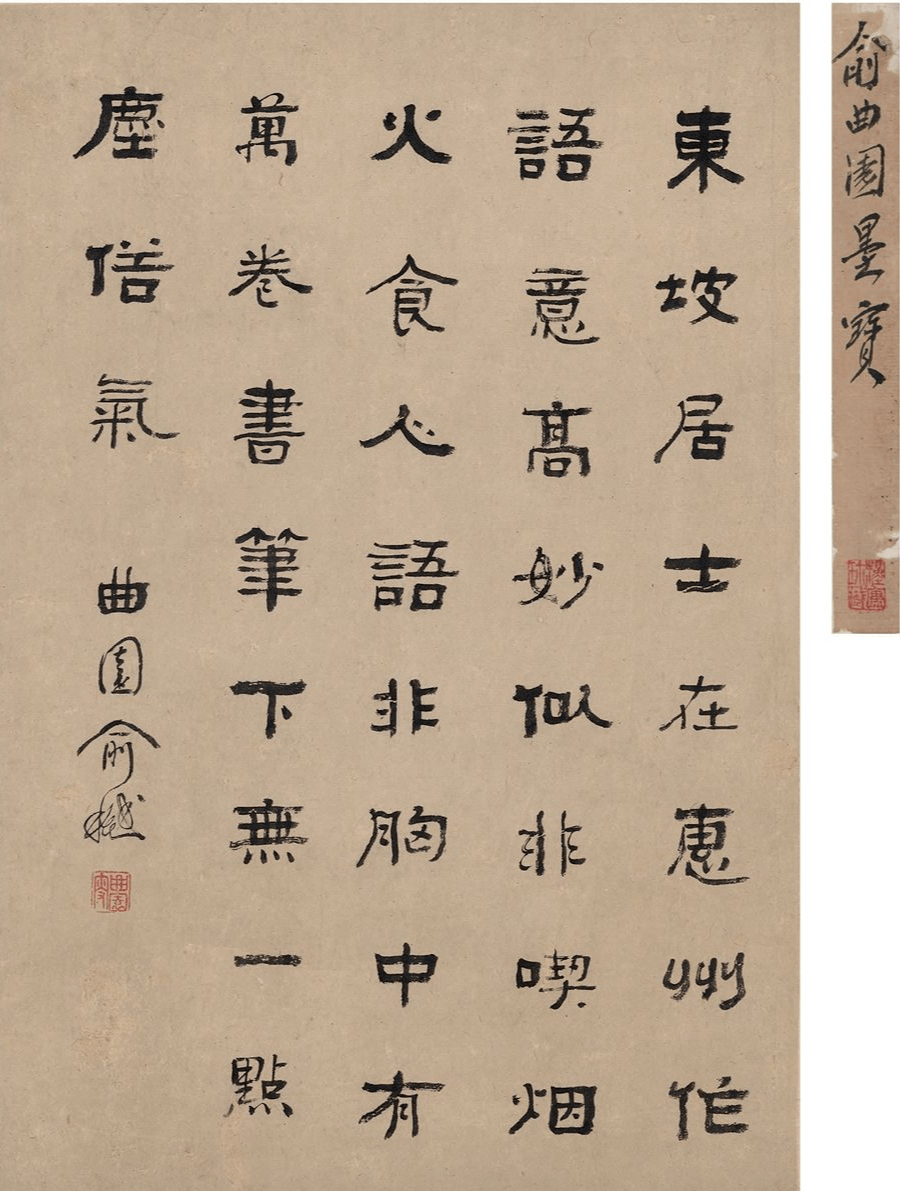 俞曲園墨寶
東坡居士在惠州作
語意髙妙似非喫烟
火食人語非胸中有
萬卷書筆下無一點
塵俗氣 曲園俞樾
曲園叟